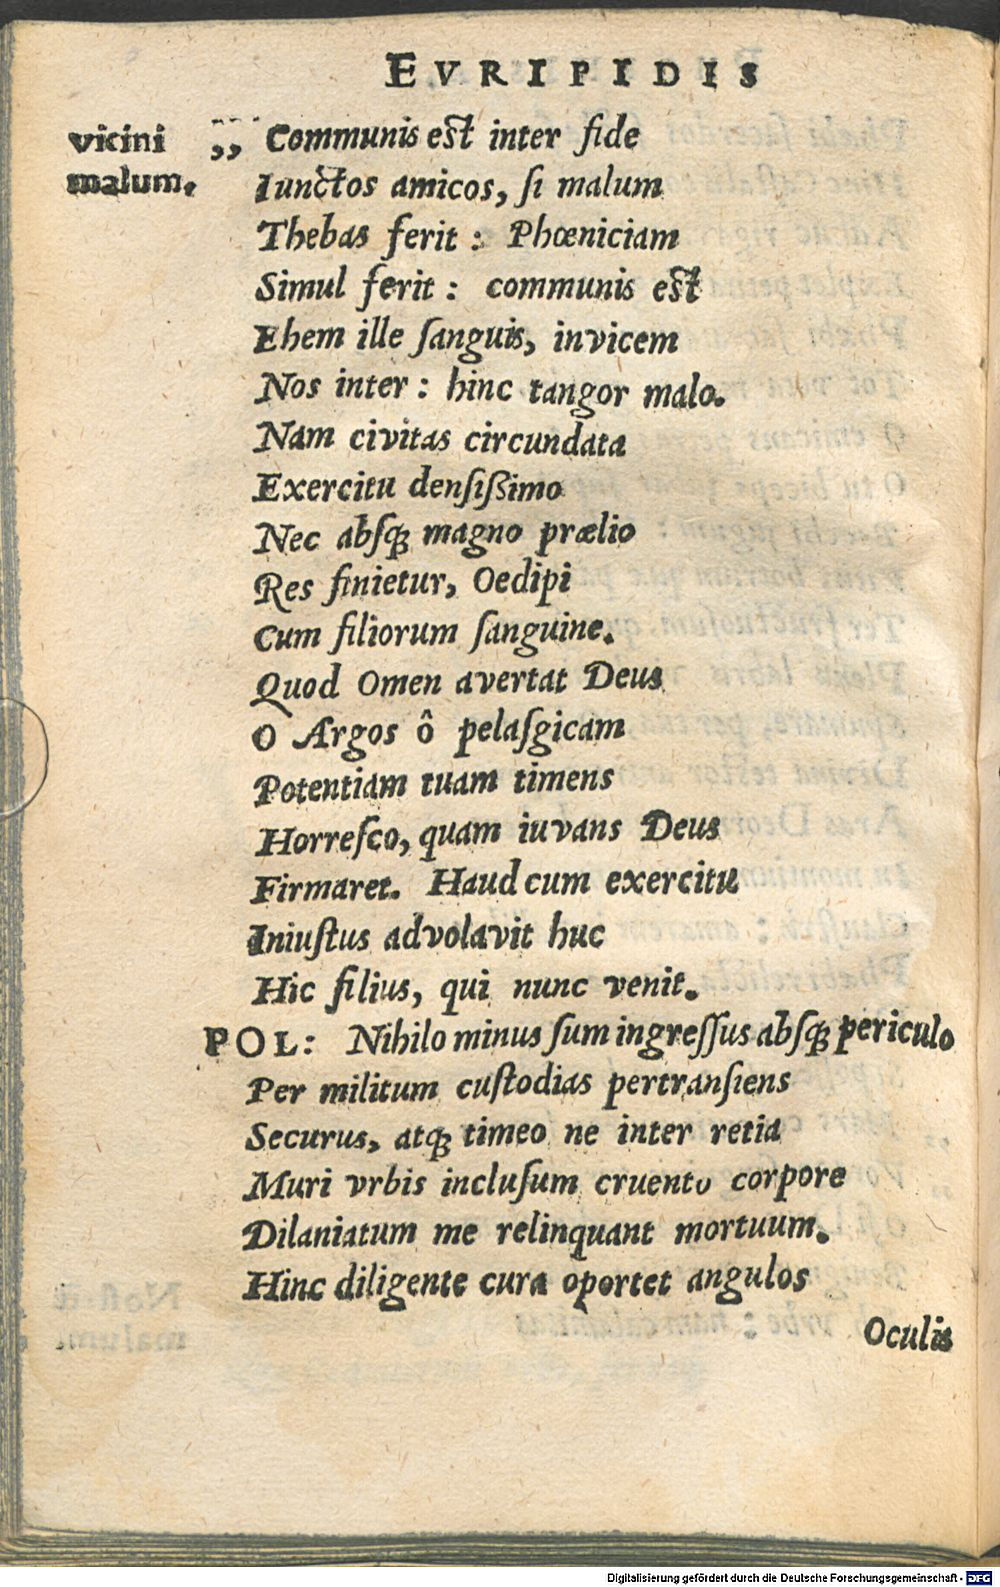 EVRIPIDIS
vicini
malum.
,, Communis est inter fide
Iunctos amicos, ſi malum
Thebas ferit: Phœniciam
Simul ferit: communis est
Ehem ille ſanguis, invicem
Nos inter: hinc tangor malo.
Nam civitas circundata
Exercitu denſiſsimo
Nec abſq; magno prælio
Res finietur, Oedipi
Cum filiorum ſanguine.
Quod Omen avertat Deus
O Argos ô pelaſgicam
Potentiam tuam timens
Horreſco, quam iuvans Deus
Firmaret. Haud cum exercitu
Iniuſtus advolavit huc
Hic filius, qui nunc venit.
POL: Nihilo minus ſum ingreſſus abſq; periculo
Per militum cuſtodias pertranſiens
Securus, atq; timeo ne inter retia
Muri vrbis incluſum cruento corpore
Dilaniatum me relinquant mortuum.
Hinc diligente cura oportet angulos
Oculis
Digitalisierung gefördert durch die Deutsche Forschungsgemeinschaft - DFG